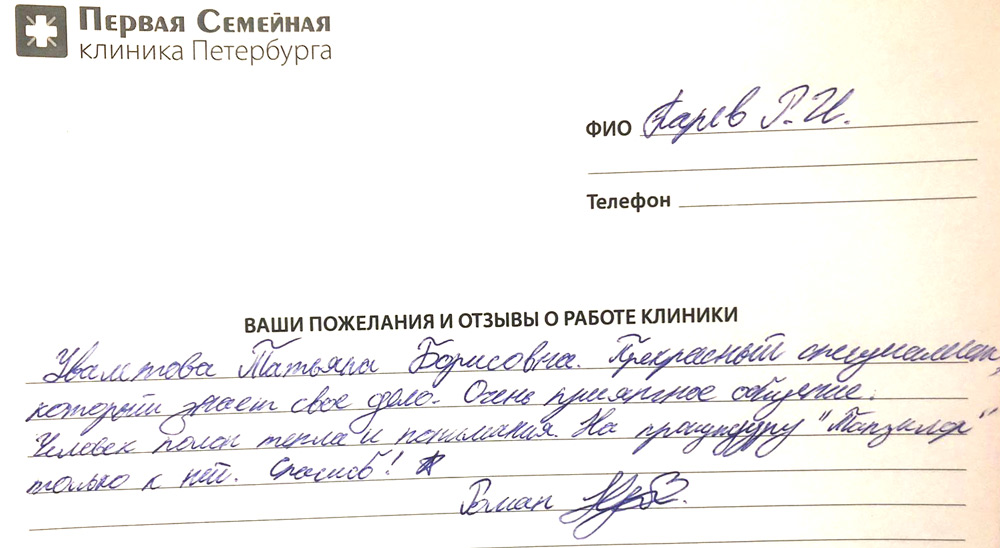 Первая Семейная
клиника Петербурга
ФИО Р. И.
Телефон
ВАШИ ПОЖЕЛАНИЯ И ОТЗЫВЫ О РАБОТЕ КЛИНИКИ
Татьяна Борисовна. Прекрасный специалист,
который знает свое дело. Очень приятное общение.
Человек полон тепла и понимания. На процедуру
только к ней. Спасибо!
Роман